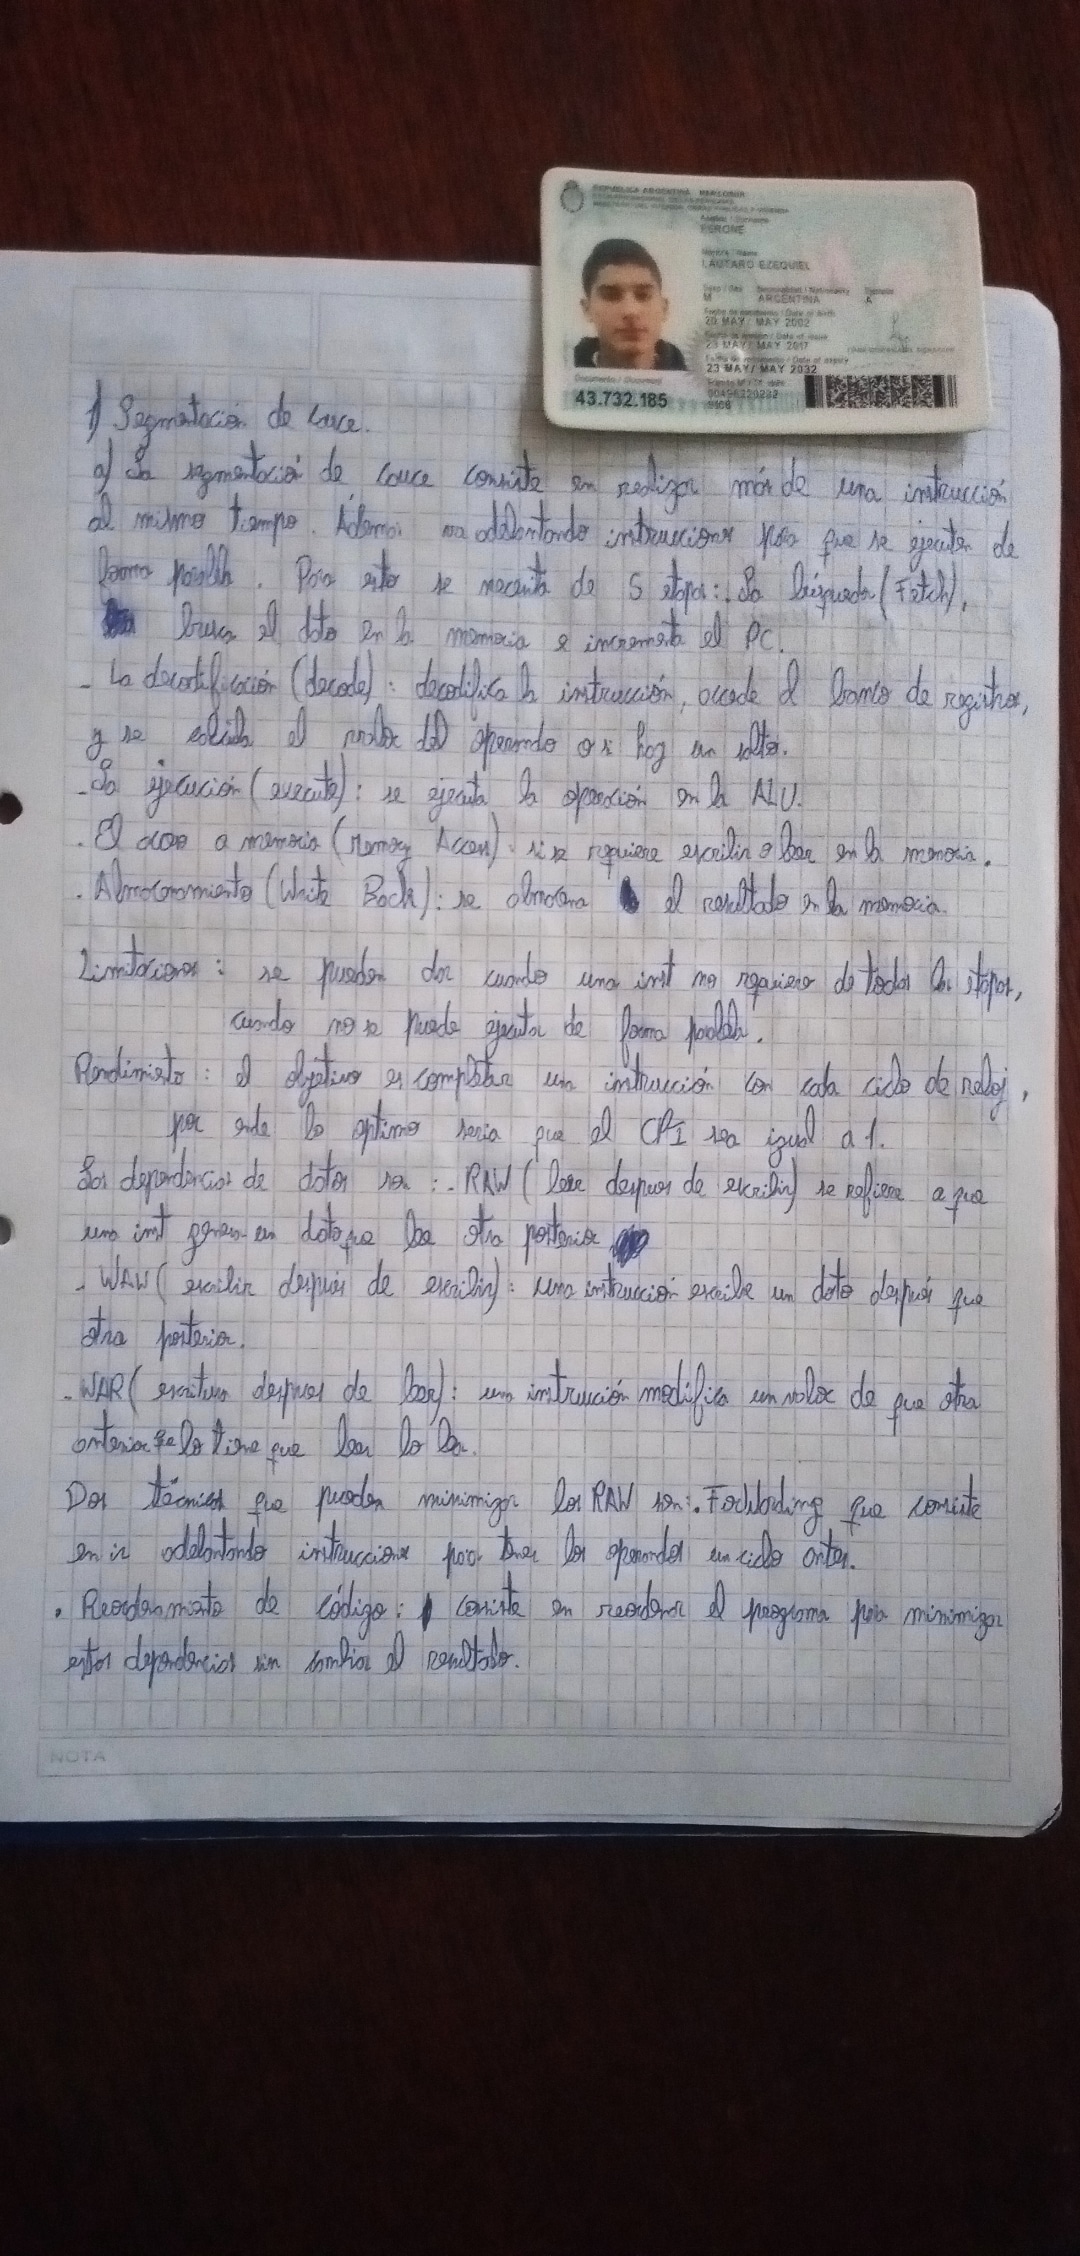 REPUBLICA ARGENTINA - MERCOSUR
Apellido / Surname
PERONE
Nombre / Name
LAUTARO EZEQUIEL
Sexo / Sex Nacionalidad / Nationality Ejemplar
M ARGENTINA A
Fecha de nacimiento / Date of birth
20 MAY/ MAY 2002
Fecha de emisión / Date of issue
23 MAY/ MAY 2017
Fecha de vencimiento / Date of expiry
23 MAY/ MAY 2032
Documento / Document
43.732.185
1) Segmentación de cauce.
a) La segmentació de cauce consiste en realizar más de una instrucción
al mismo tiempo. Además va adelantando instrucciones para que se ejecuten de
forma paralela. Para esto se necesita de 5 etapas: La búsqueda (Fetch),
busca el dato en la memoria e incrementa el PC.
- La decodificación (decode): decodifica la instrucción, accede al banco de registros,
y se calcula el valor del operando o si hay un salto.
- La ejecución (execute): se ejecuta la operación en la ALU.
. El acceso a memoria (Memory Access): si se requiere escribir o leer en la memoria.
. Almacenamiento (Write Back): se almacena el resultado en la memoria.
Limitaciones: se pueden dar cuando una inst no requiere de todas las etapas,
cuando no se puede ejecutar de forma paralela.
Rendimiento: el objetivo es completar una instrucción con cada ciclo de reloj,
por ende lo optimo seria que el CPI sea igual a 1.
Las dependencias de datos son: - RAW (leer despues de escribir) se refiere a que
una inst genera un dato que lee otra posterior
- WAW (escribir después de escribir): una instrucción escribe un dato después que
otra posterior.
- WAR (escritura despues de leer): una instrución modifica un valor de que otra
anterior que lo tiene que leer lo lea.
Dos técnicas que pueden minimizar los RAW son: . que consiste
en ir adelantando instrucciones para tener los operandos un ciclo antes.
. Reordenamiento de código: consiste en reordenar el programa para minimizar
estas dependencias sin cambiar el resultado.
NOTA